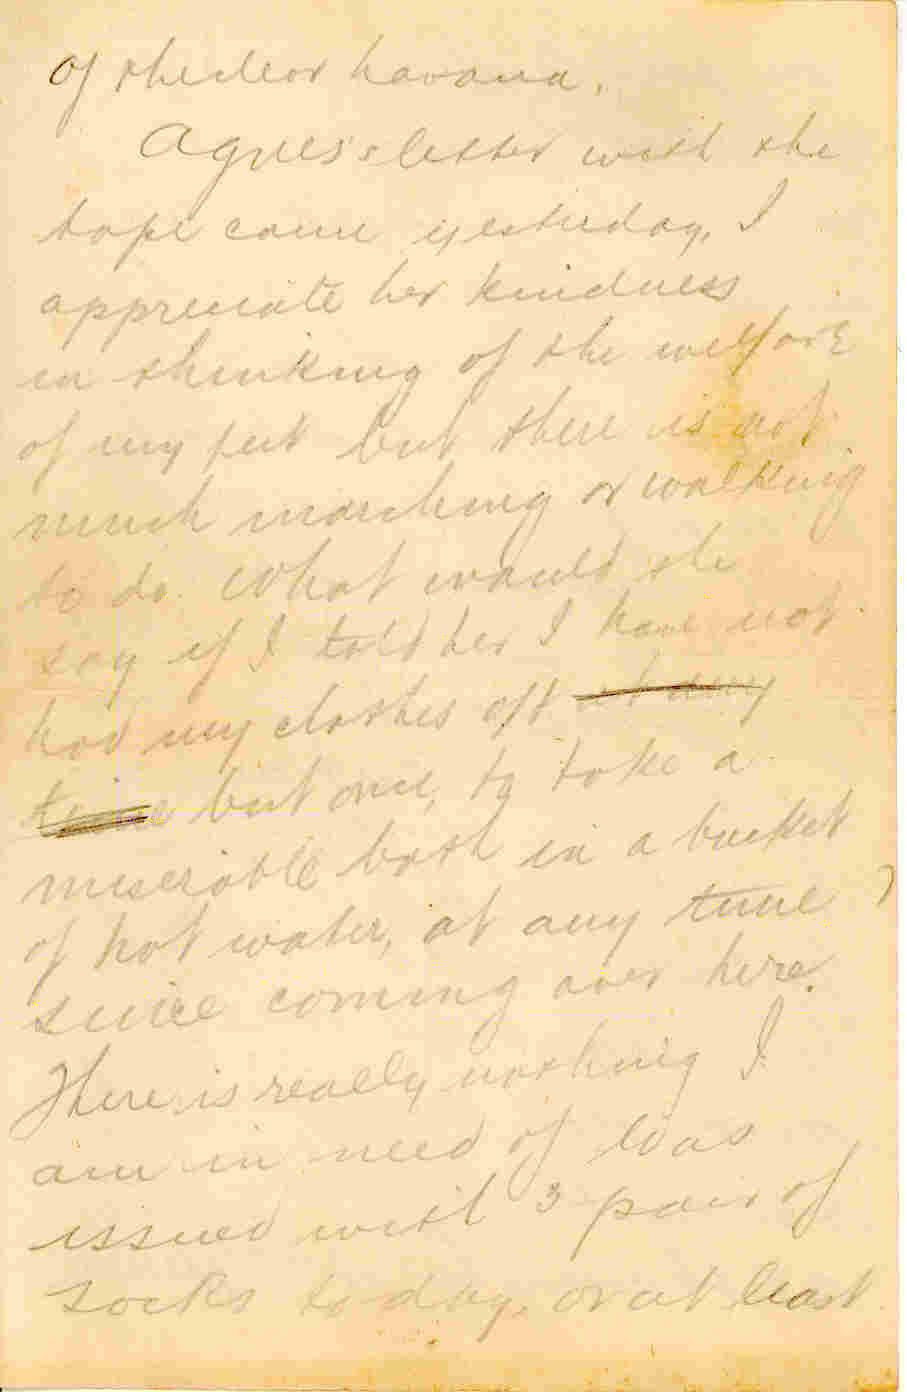 of the dear havana.
Agnes's letter with the
tape came yesterday, I
appreciate her kindness
in thinking of the welfare
of my feet but there is not
much marching or walking
to do. What would she
say if I told her I have not
had my clothes off at any
time but once, to take a
miserable bath in a bucket
of hot water, at any time
since coming over here?
There is really nothing I
am in need of. I was
issued with 3 pair of
socks to-day, or at least